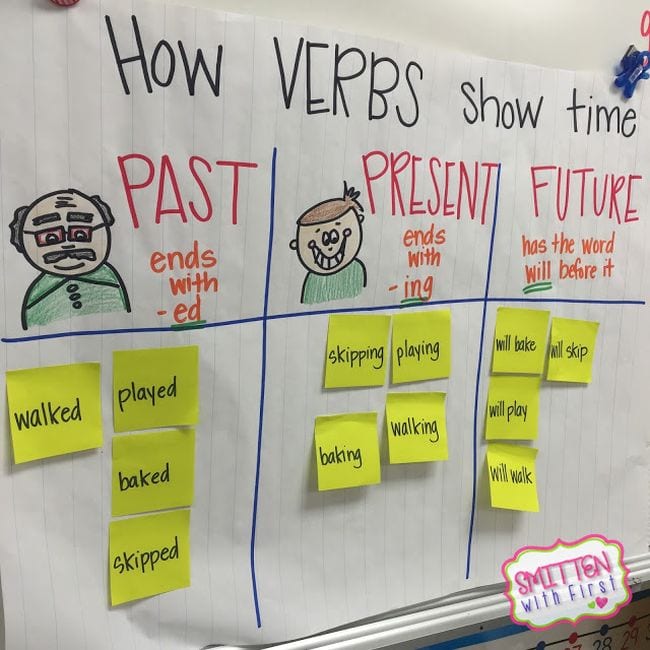 How VERBS show time
PAST
ends
with
- ed
PRESENT
ends
with
- ing
FUTURE
has the word
will before it
walked
played
baked
skipped
skipping
playing
baking
walking
will bake
will skip
will play
will walk
SMITTEN
with First
28
29